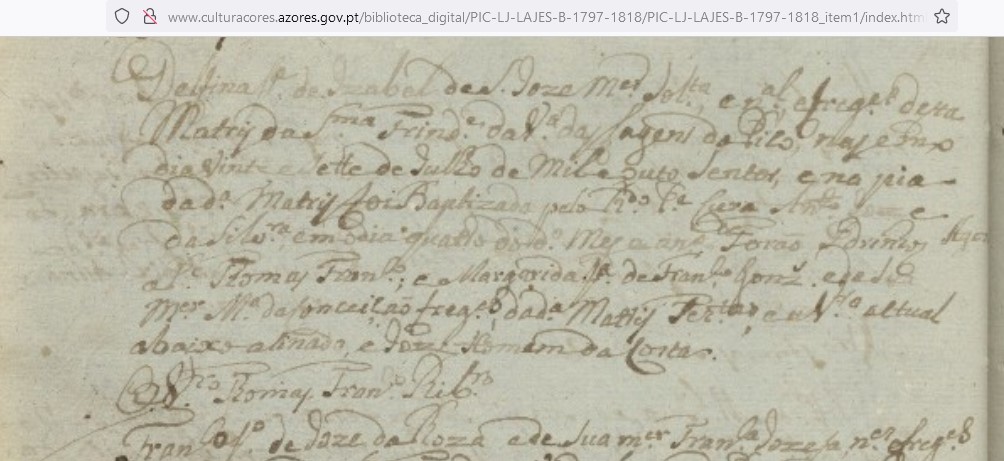 www.culturacores.azores.gov.pt/biblioteca_digital/PIC-LJ-LAJES-B-1797-1818/PIC-LJ-LAJES-B-1797-1818_item1/index.htm
Delfina fª. de Izabel de S. Joze Mer Solta, e nal. e freges desta
Matriz da Sma Trinde da Va das Lagens do Pico nasceo no
dia Vinte e Sette de Julho de Mil e outo Sentos, e na pia
da dª Matriz foi Baptizada pelo Rdo Pe Cura Anto e
da Silvra em o dia quatro do do Mes e
o Pe Thomas Franco, e Margarida fª de Franco Gonz. e de sua
mer Mª da Conceição fregs da dª Matriz Test.as, e o Vro attual
abaixo asinado, e Joze Homem da Costa.
O Vro Thomas Franco Ribro
Franco fº de Joze da Roza e de Sua mer Franca Jozefa nes e freges